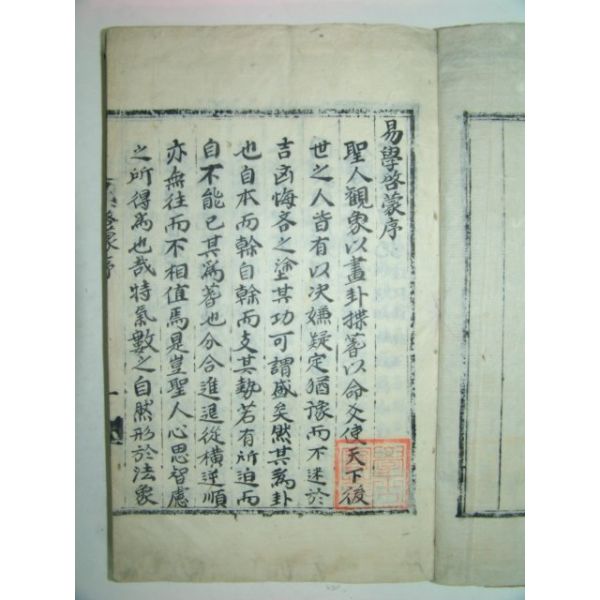 易學啓蒙序
聖人觀象以畫卦揲蓍以命爻使天下後
世之人皆有以决嫌疑定猶豫而不迷於
吉凶悔吝之塗其功可謂盛矣然其為卦
也自本而幹自幹而支其勢若有所迫而
自不能已其為蓍也分合進退從橫逆順
亦無往而不相值焉是豈聖人心思智慮
之所得為也哉特氣數之自然形於法象
啓蒙序
一